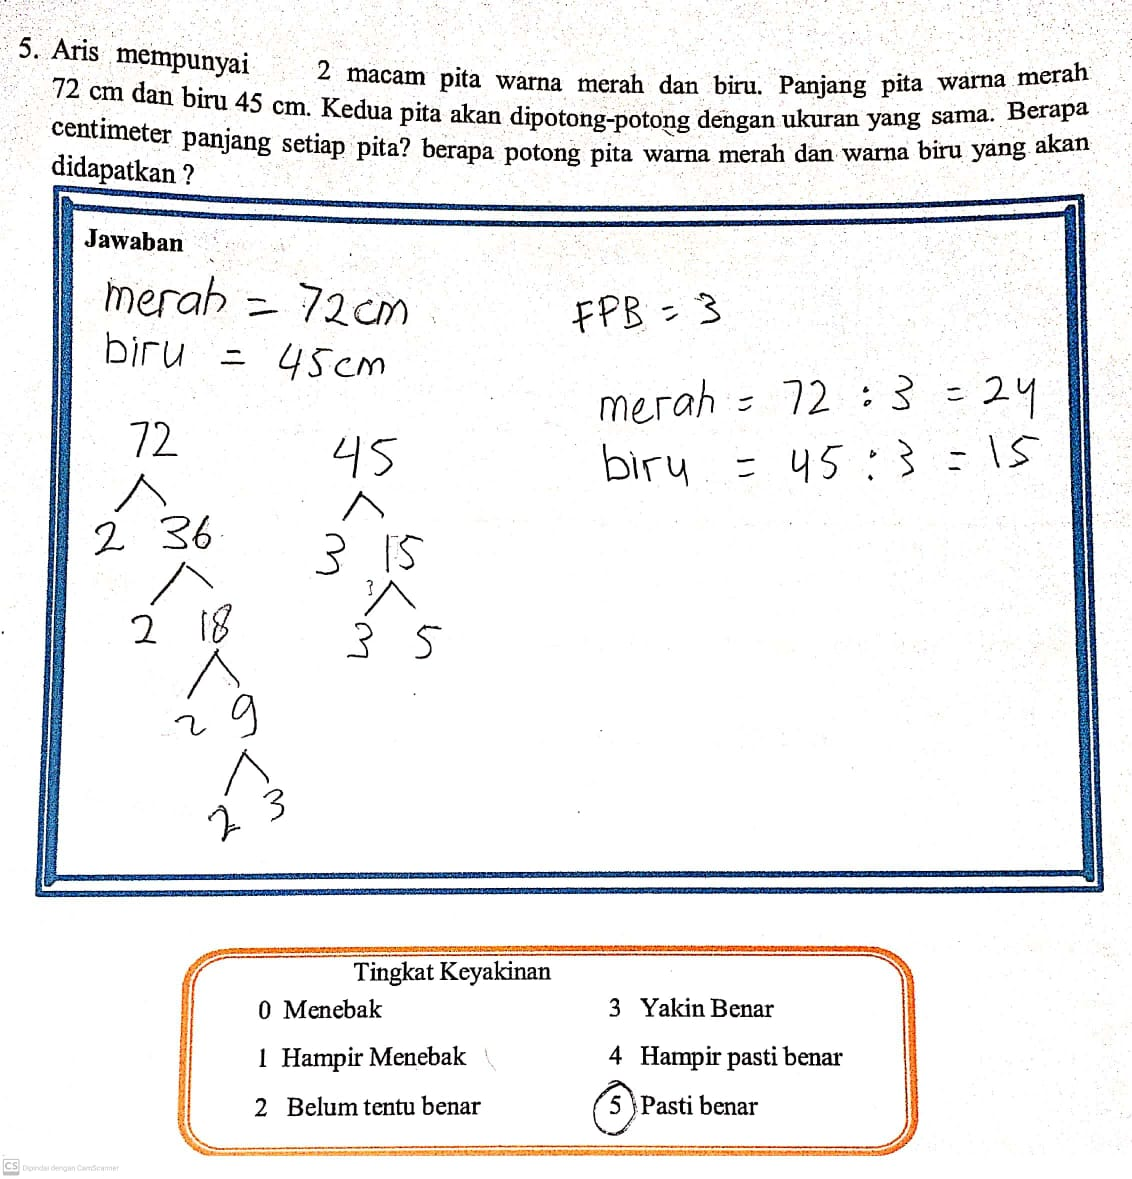 5. Aris mempunyai 2 macam pita warna merah dan biru. Panjang pita warna merah
72 cm dan biru 45 cm. Kedua pita akan dipotong-potong dengan ukuran yang sama. Berapa
centimeter panjang setiap pita? berapa potong pita warna merah dan warna biru yang akan
didapatkan ?
Jawaban
merah = 72 cm
biru = 45 cm
72
2 36
2 18
2 9
2 3
45
3 15
3
3 5
FPB = 3
merah = 72 : 3 = 24
biru = 45 : 3 = 15
Tingkat Keyakinan
0 Menebak
1 Hampir Menebak
2 Belum tentu benar
3 Yakin Benar
4 Hampir pasti benar
5 Pasti benar
CS Dipindai dengan CamScanner